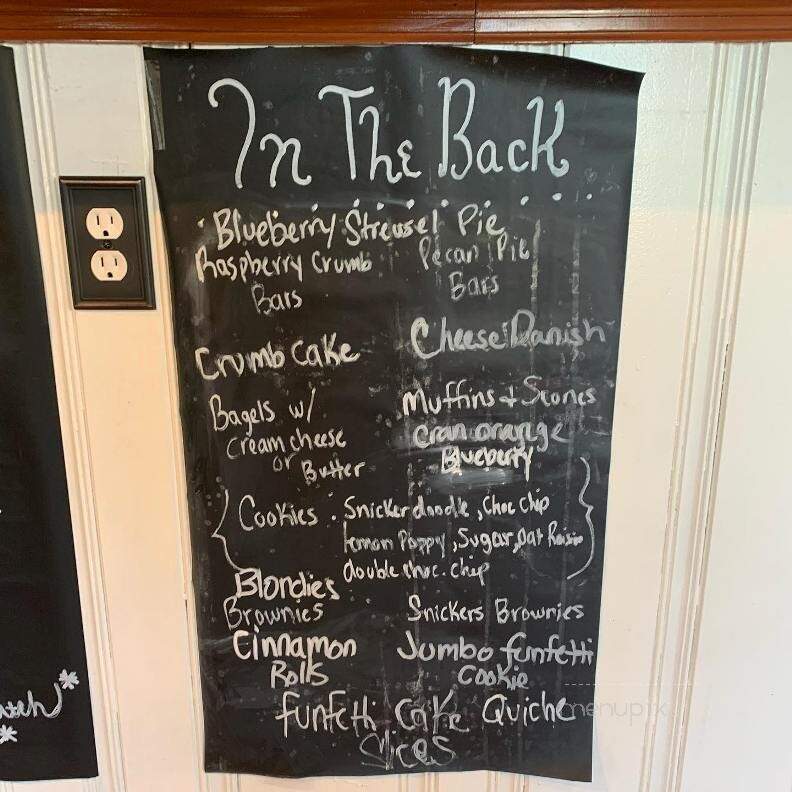 In The Back
Blueberry Streusel Pie
Raspberry Crumb
Bars
Pecan Pie
Bars
Crumb Cake
Cheese Danish
Bagels w/
Cream cheese
or
Butter
Muffins + Scones
Cran orange
Blueberry
Cookies . Snickerdoodle, Choc Chip
lemon Poppy, Sugar, Oat Raisin
double choc. chip
Blondies
Brownies
Snickers Brownies
Cinnamon
Rolls
Jumbo funfetti
Cookie
funfetti Cake Quiche
Slices
menupix